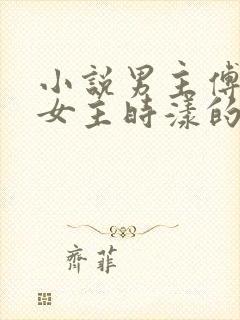 小説男主傅
女主時漾的
齊菲